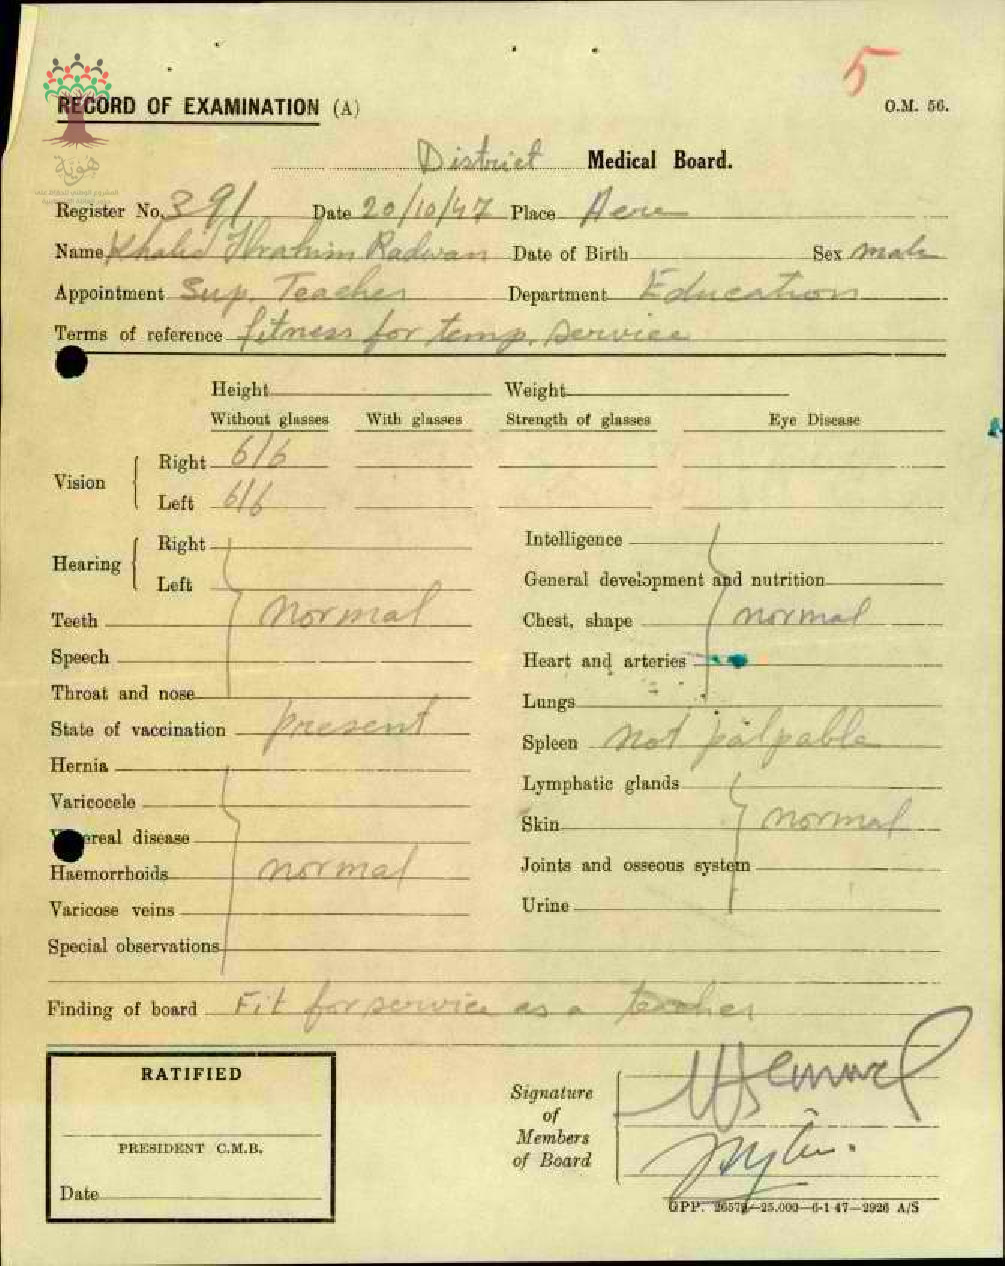 5
RECORD OF EXAMINATION (A)
O.M. 56.
هوية
District Medical Board.
Register No. 391 Date 20/10/47 Place Acre
Name Khalid Ibrahim Radwan Date of Birth Sex male
Appointment Sup. Teacher Department Education
Terms of reference fitness for temp. service
Height Weight
Without glasses With glasses Strength of glasses Eye Disease
Vision
Right 6/6
Left 6/6
Hearing
Right
Left
Teeth normal
Speech
Throat and nose
State of vaccination present
Hernia
Varicocele
ereal disease
Haemorrhoids normal
Varicose veins
Special observations
Intelligence
General development and nutrition
Chest, shape normal
Heart and arteries
Lungs
Spleen not palpable
Lymphatic glands
Skin normal
Joints and osseous system
Urine
Finding of board Fit for service as a teacher
RATIFIED
PRESIDENT C.M.B.
Date
Signature
of
Members
of Board
GPP. 2657—25.000—6-1-47—2926 A/S